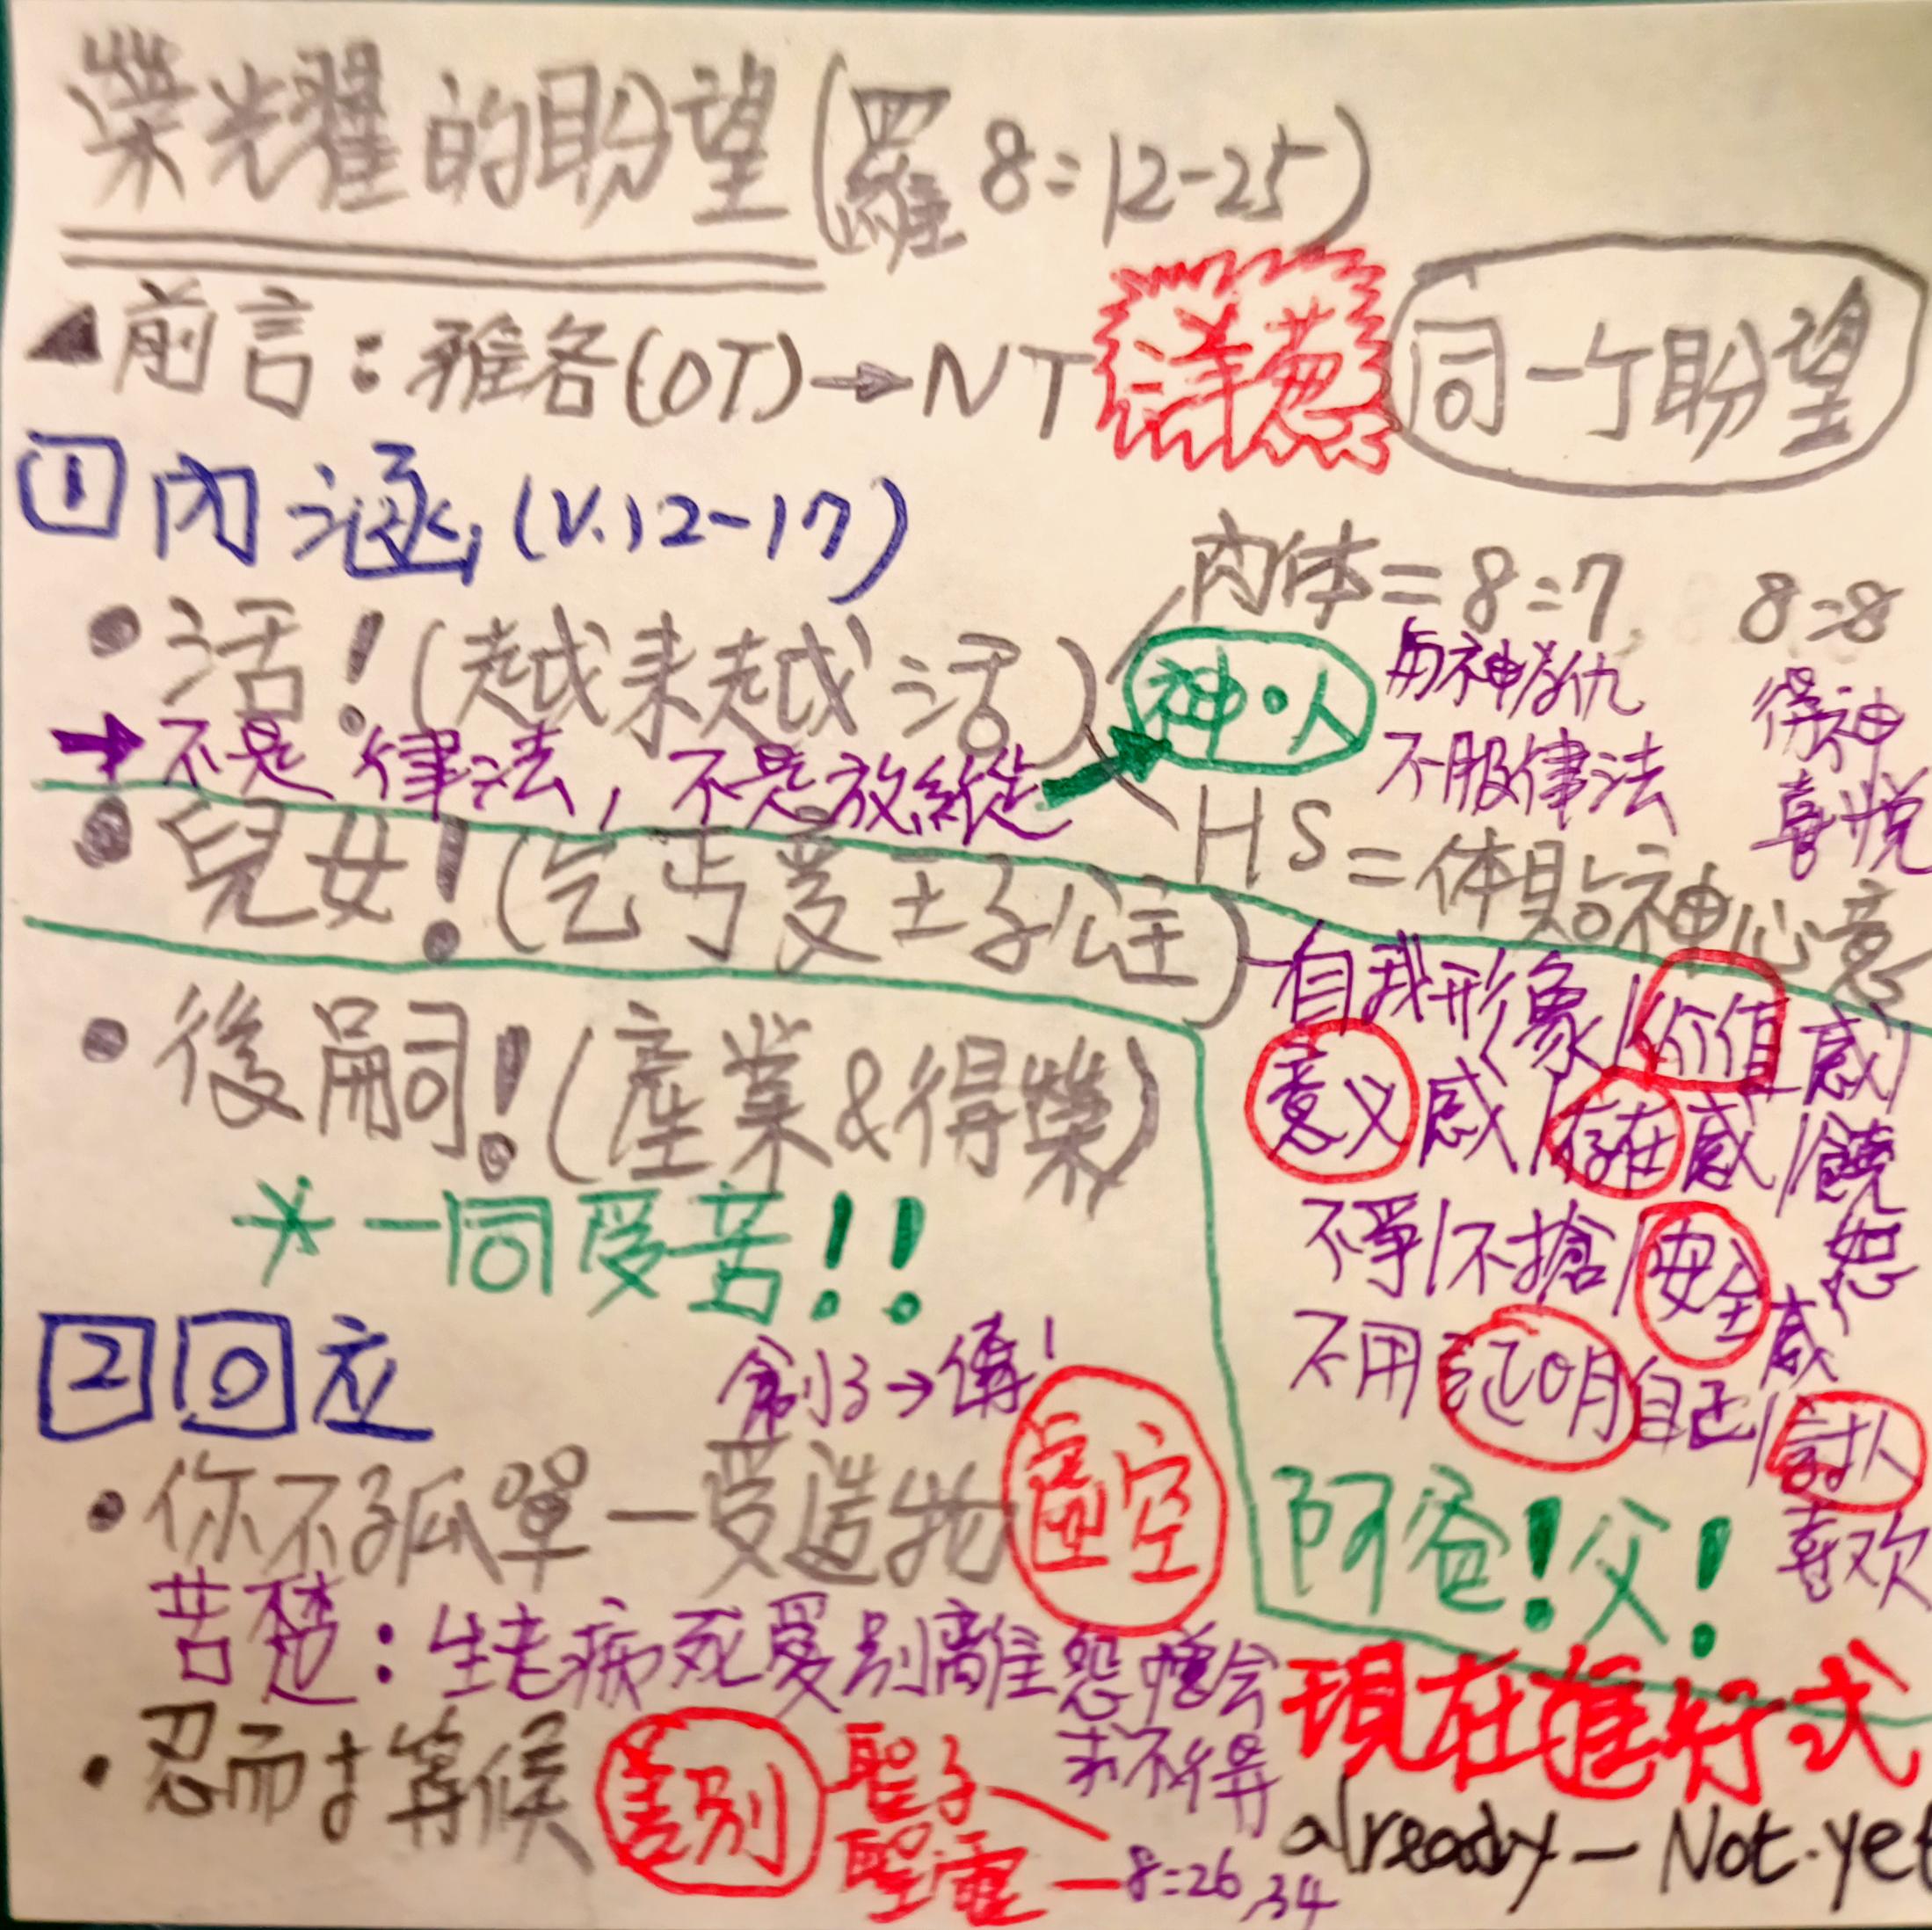 榮光耀的盼望(羅8:12-25)
▲前言:雅各(OT)→NT 洋葱 同一个盼望
1 內涵(V.12-17)
• 活!(越来越活) 神·人
肉体=8:7 8:8
与神为仇 得神
不服律法 喜悅
HS=体貼神心意
→不是律法,不是放縱
• 兒女!(乞丐变王子/公主)
自我形象/价值感/
意义感/存在感/饒恕
不爭/不搶/安全感
不用证明自己/討人喜欢
阿爸!父!
• 後嗣!(產業&得榮)
*一同受苦!!
2 回应
創3→傳1
• 你不孤單—受造物 虛空
苦楚:生老病死愛別離怨憎会
求不得
現在進行式
• 忍耐等候 差別 聖子
聖靈—8:26,34
already-Not.yet